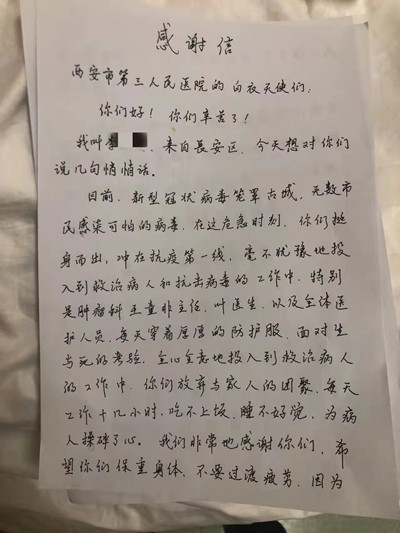 感谢信
西安市第三人民医院的白衣天使们：
你们好！你们辛苦了！
我叫 来自长安区，今天想对你们
说几句悄悄话。
目前，新型冠状病毒笼罩古城，无数市
民感染可怕的病毒，在这危急时刻，你们挺
身而出，冲在抗疫第一线，毫不犹豫地投
入到救治病人和抗击病毒的工作中，特别
是肿瘤科王童非主任，叶医生，以及全体医
护人员，每天穿着厚厚的防护服，面对生
与死的考验，全心全意地投入到救治病人
的工作中，你们放弃与家人的团聚，每天
工作十几小时，吃不上饭，睡不好觉，为病
人操碎了心。我们非常地感谢你们，希
望你们保重身体，不要过渡疲劳，因为